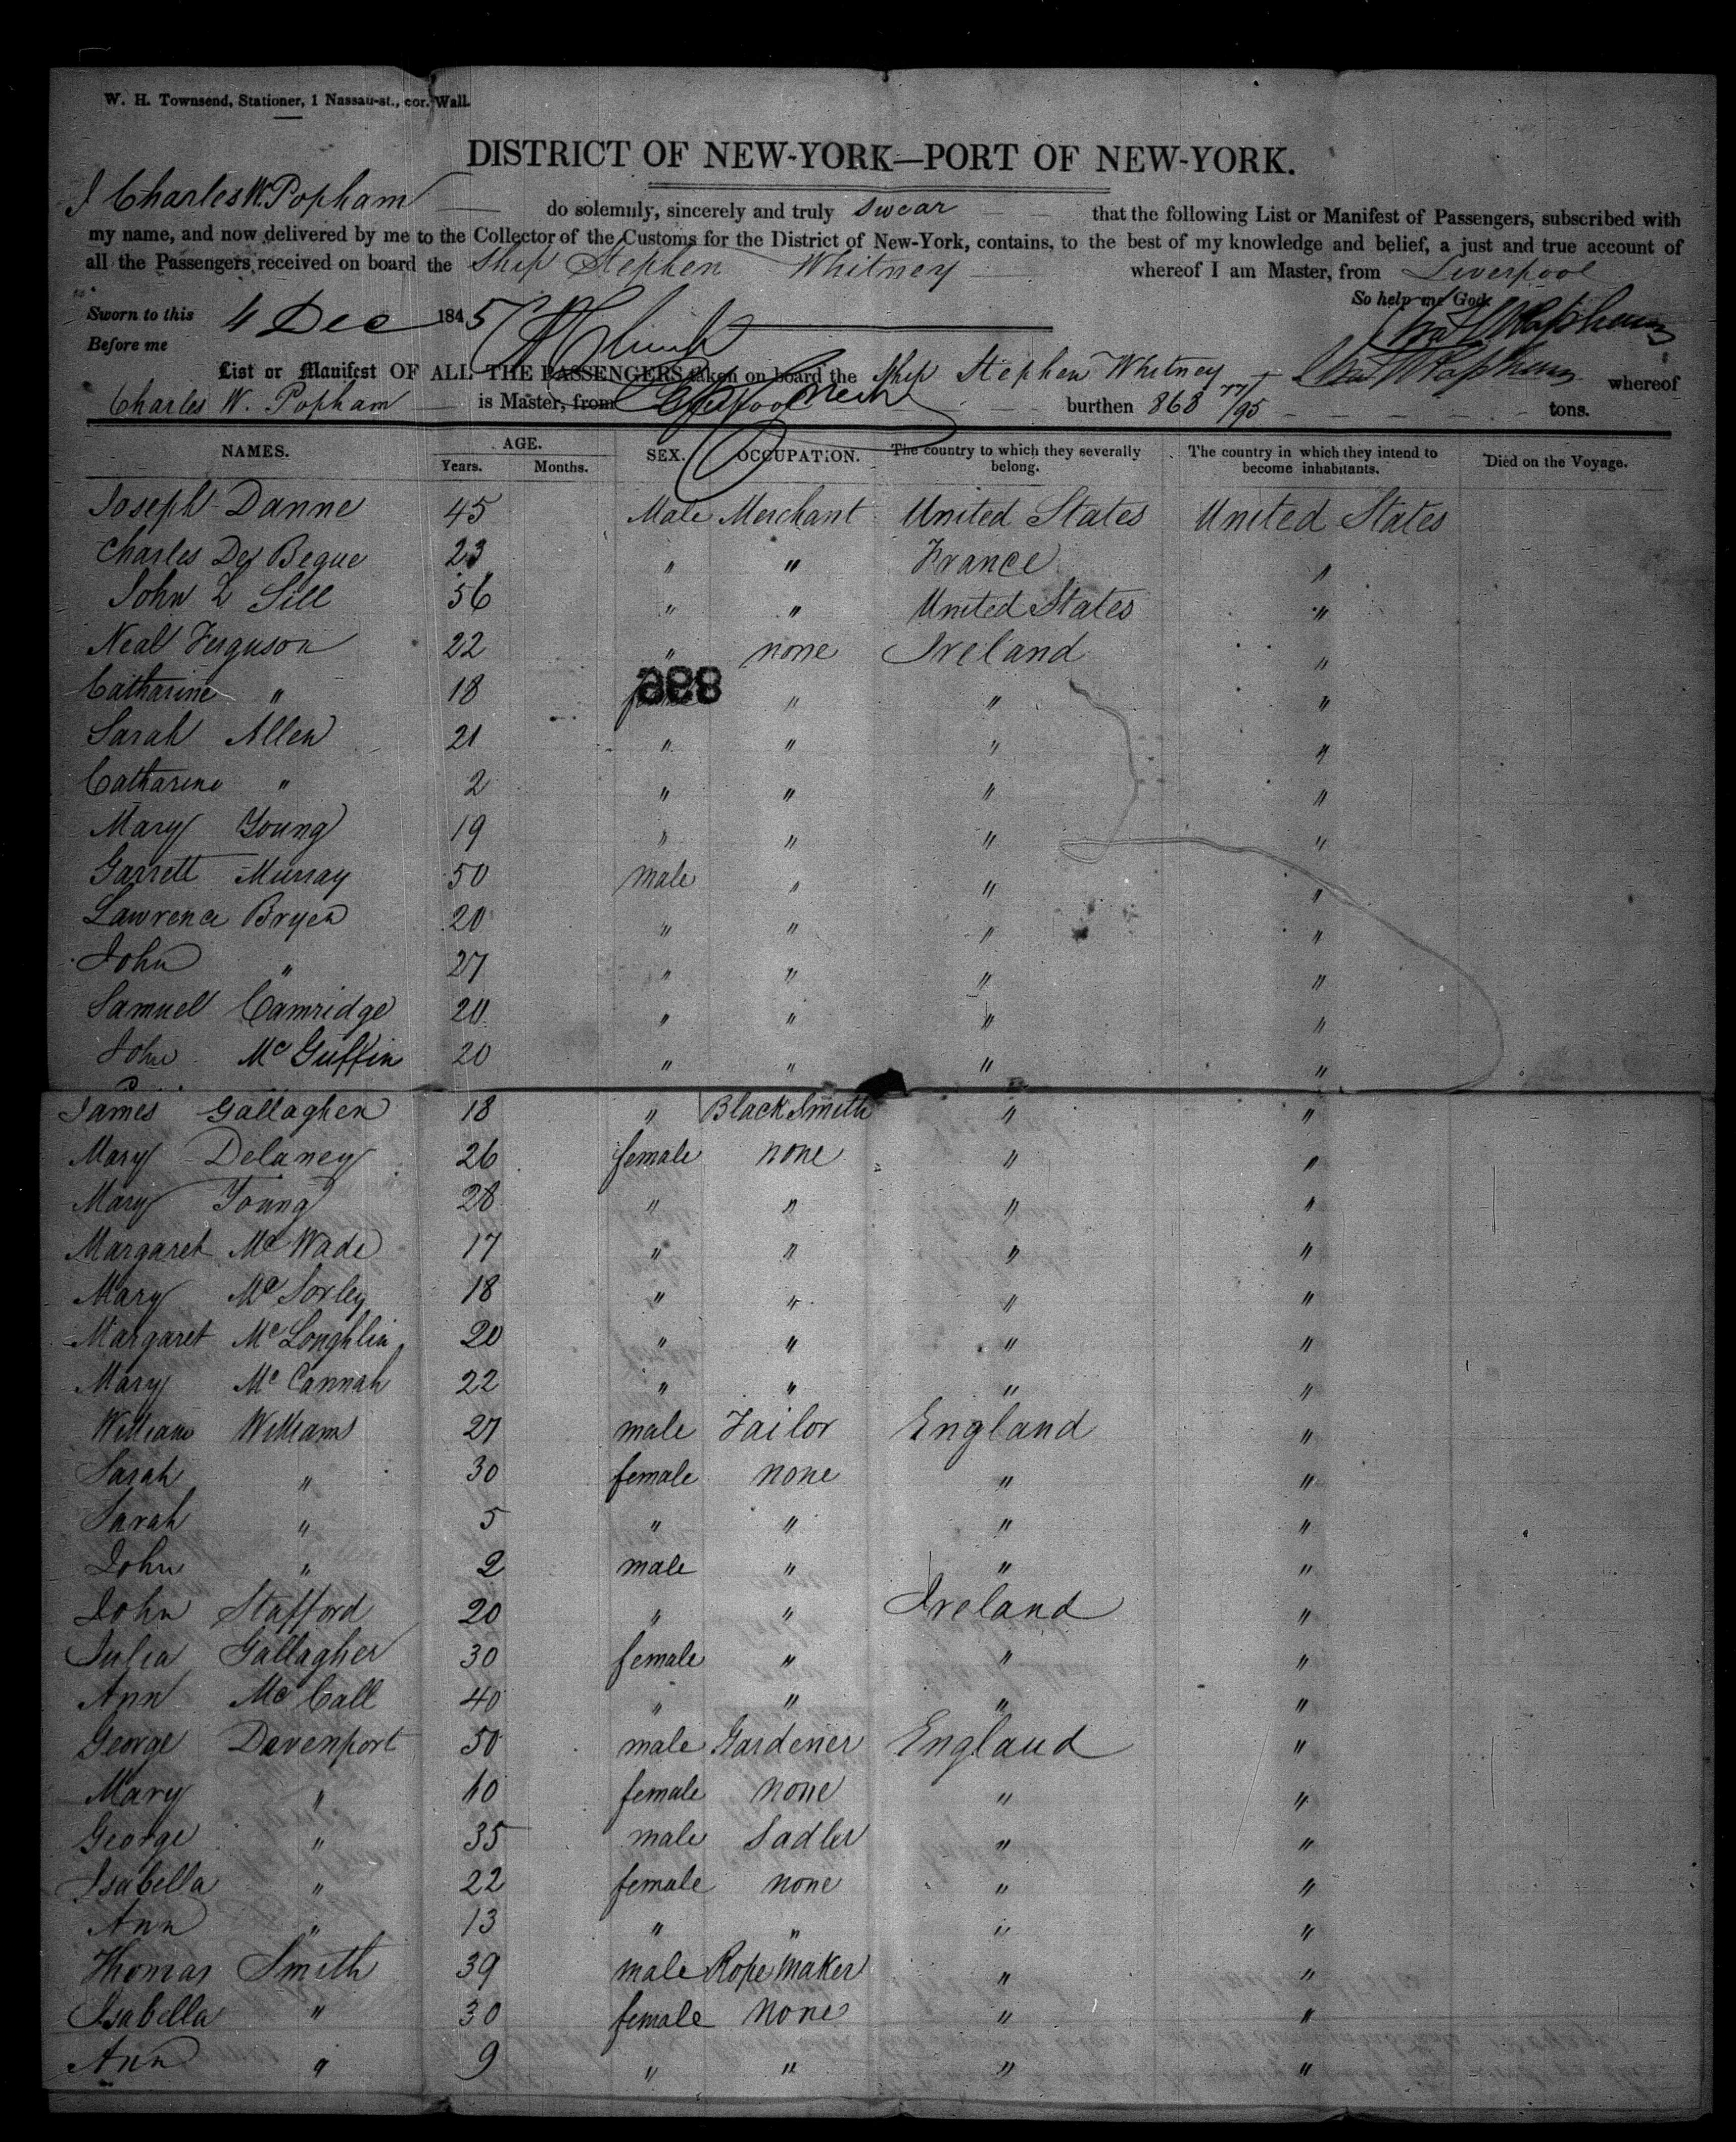 W. H. Townsend, Stationer, 1 Nassau-st., cor. Wall.
DISTRICT OF NEW-YORK—PORT OF NEW-YORK.
I Charles W. Popham do solemnly, sincerely and truly swear that the following List or Manifest of Passengers, subscribed with
my name, and now delivered by me to the Collector of the Customs for the District of New-York, contains, to the best of my knowledge and belief, a just and true account of
all the Passengers received on board the Ship Stephen Whitney whereof I am Master, from Liverpool
So help me God.
Sworn to this 4 Dec 1845
Before me
List or Manifest OF ALL THE PASSENGERS taken on board the Ship Stephen Whitney whereof
Charles W. Popham is Master, from Liverpool burthen 868 77/95 tons.
NAMES. AGE. Years. Months. SEX. OCCUPATION. The country to which they severally belong. The country in which they intend to become inhabitants. Died on the Voyage.
Joseph Danne 45 Male Merchant United States United States
Charles De Begue 23 " " France "
John L Sill 56 " " United States "
Neal Ferguson 22 " none Ireland "
898
Catharine " 18 " " "
Sarah Allen 21 " " " "
Catharine " 2 " " " "
Mary Young 19 " " " "
Garrett Murray 50 male " " "
Lawrence Bryen 20 " " " "
John " 27 " " " "
Samuel Camridge 20 " " " "
John McGuffin 20 " " " "
James Gallagher 18 " BlackSmith " "
Mary Delaney 26 female none " "
Mary Young 28 " " " "
Margaret McWade 17 " " " "
Mary McSorley 18 " " " "
Margaret McLoughlin 20 " " " "
Mary McCannah 22 " " " "
William Williams 27 male Tailor England "
Sarah " 30 female none " "
Sarah " 5 " " " "
John " 2 male " " "
John Stafford 20 " " Ireland "
Julia Gallagher 30 female " " "
Ann McCall 40 " " " "
George Davenport 50 male Gardener England "
Mary " 60 female none " "
George " 35 male Sadler " "
Isabella " 22 female none " "
Ann " 13 " " " "
Thomas Smith 39 male Rope maker " "
Isabella " 30 female none " "
Ann " 9 " " " "